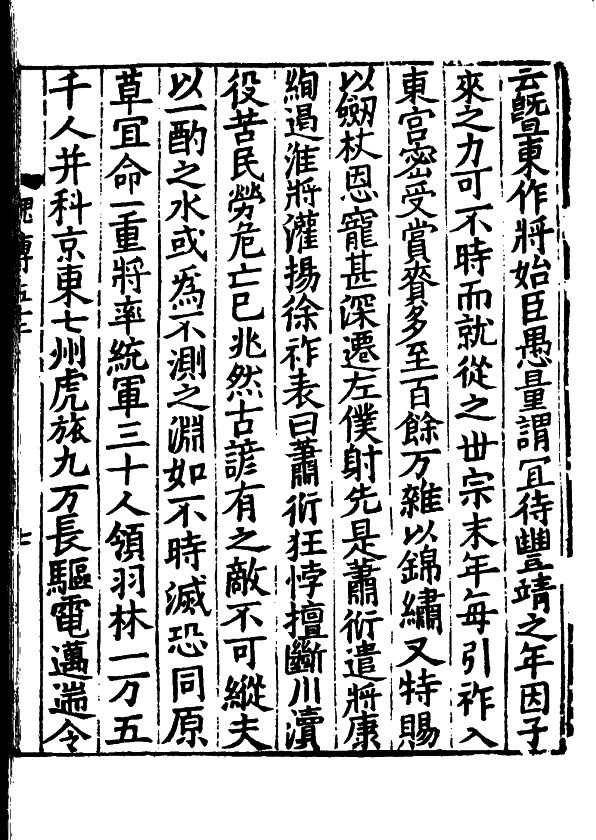 云曁東作將始臣愚量謂冝待豐靖之年因子
來之力可不時而就從之世宗末年每引祚入
東宮密受賞賚多至百餘万雜以錦繡又特賜
以劒杖恩寵甚深遷左僕射先是蕭衍遣將康
絢遏淮將灌揚徐祚表曰蕭衍狂悖擅斷川瀆
役苦民勞危亡已兆然古諺有之敵不可縱夫
以一酌之水或爲不測之淵如不時滅恐同原
草冝命一重將率統軍三十人領羽林一万五
千人并科京東七州虎旅九万長驅電邁遄令